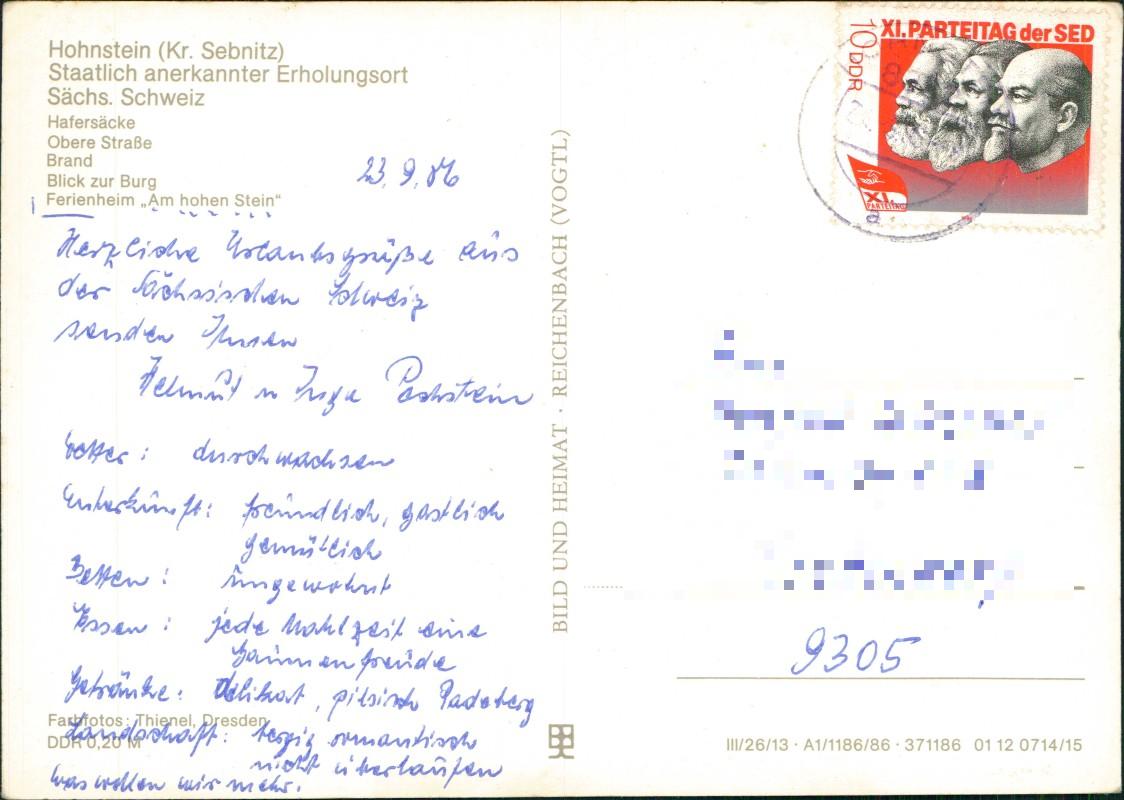 Hohnstein (Kr. Sebnitz)
Staatlich anerkannter Erholungsort
Sächs. Schweiz
Hafersäcke
Obere Straße
Brand
Blick zur Burg
Ferienheim „Am hohen Stein“
23.9.86
Herzliche Urlaubsgrüße aus
der Sächsischen Schweiz
senden Ihnen
Helmut u Inga
Wetter: durchwachsen
Unterkunft: freundlich, gastlich
gemütlich
Betten: ungewohnt
Essen: jede Mahlzeit eine
Gaumenfreude
Getränke: delikat, pilsisch Radeberg
Landschaft: bergig romantisch
nicht überlaufen
Was wollen wir mehr.
Farbfotos: Thienel, Dresden
DDR 0,20 M
BILD UND HEIMAT · REICHENBACH (VOGTL)
XI. PARTEITAG der SED
10 DDR
XI.
PARTEITAG
9305
III/26/13 · A1/1186/86 · 371186 01 12 0714/15